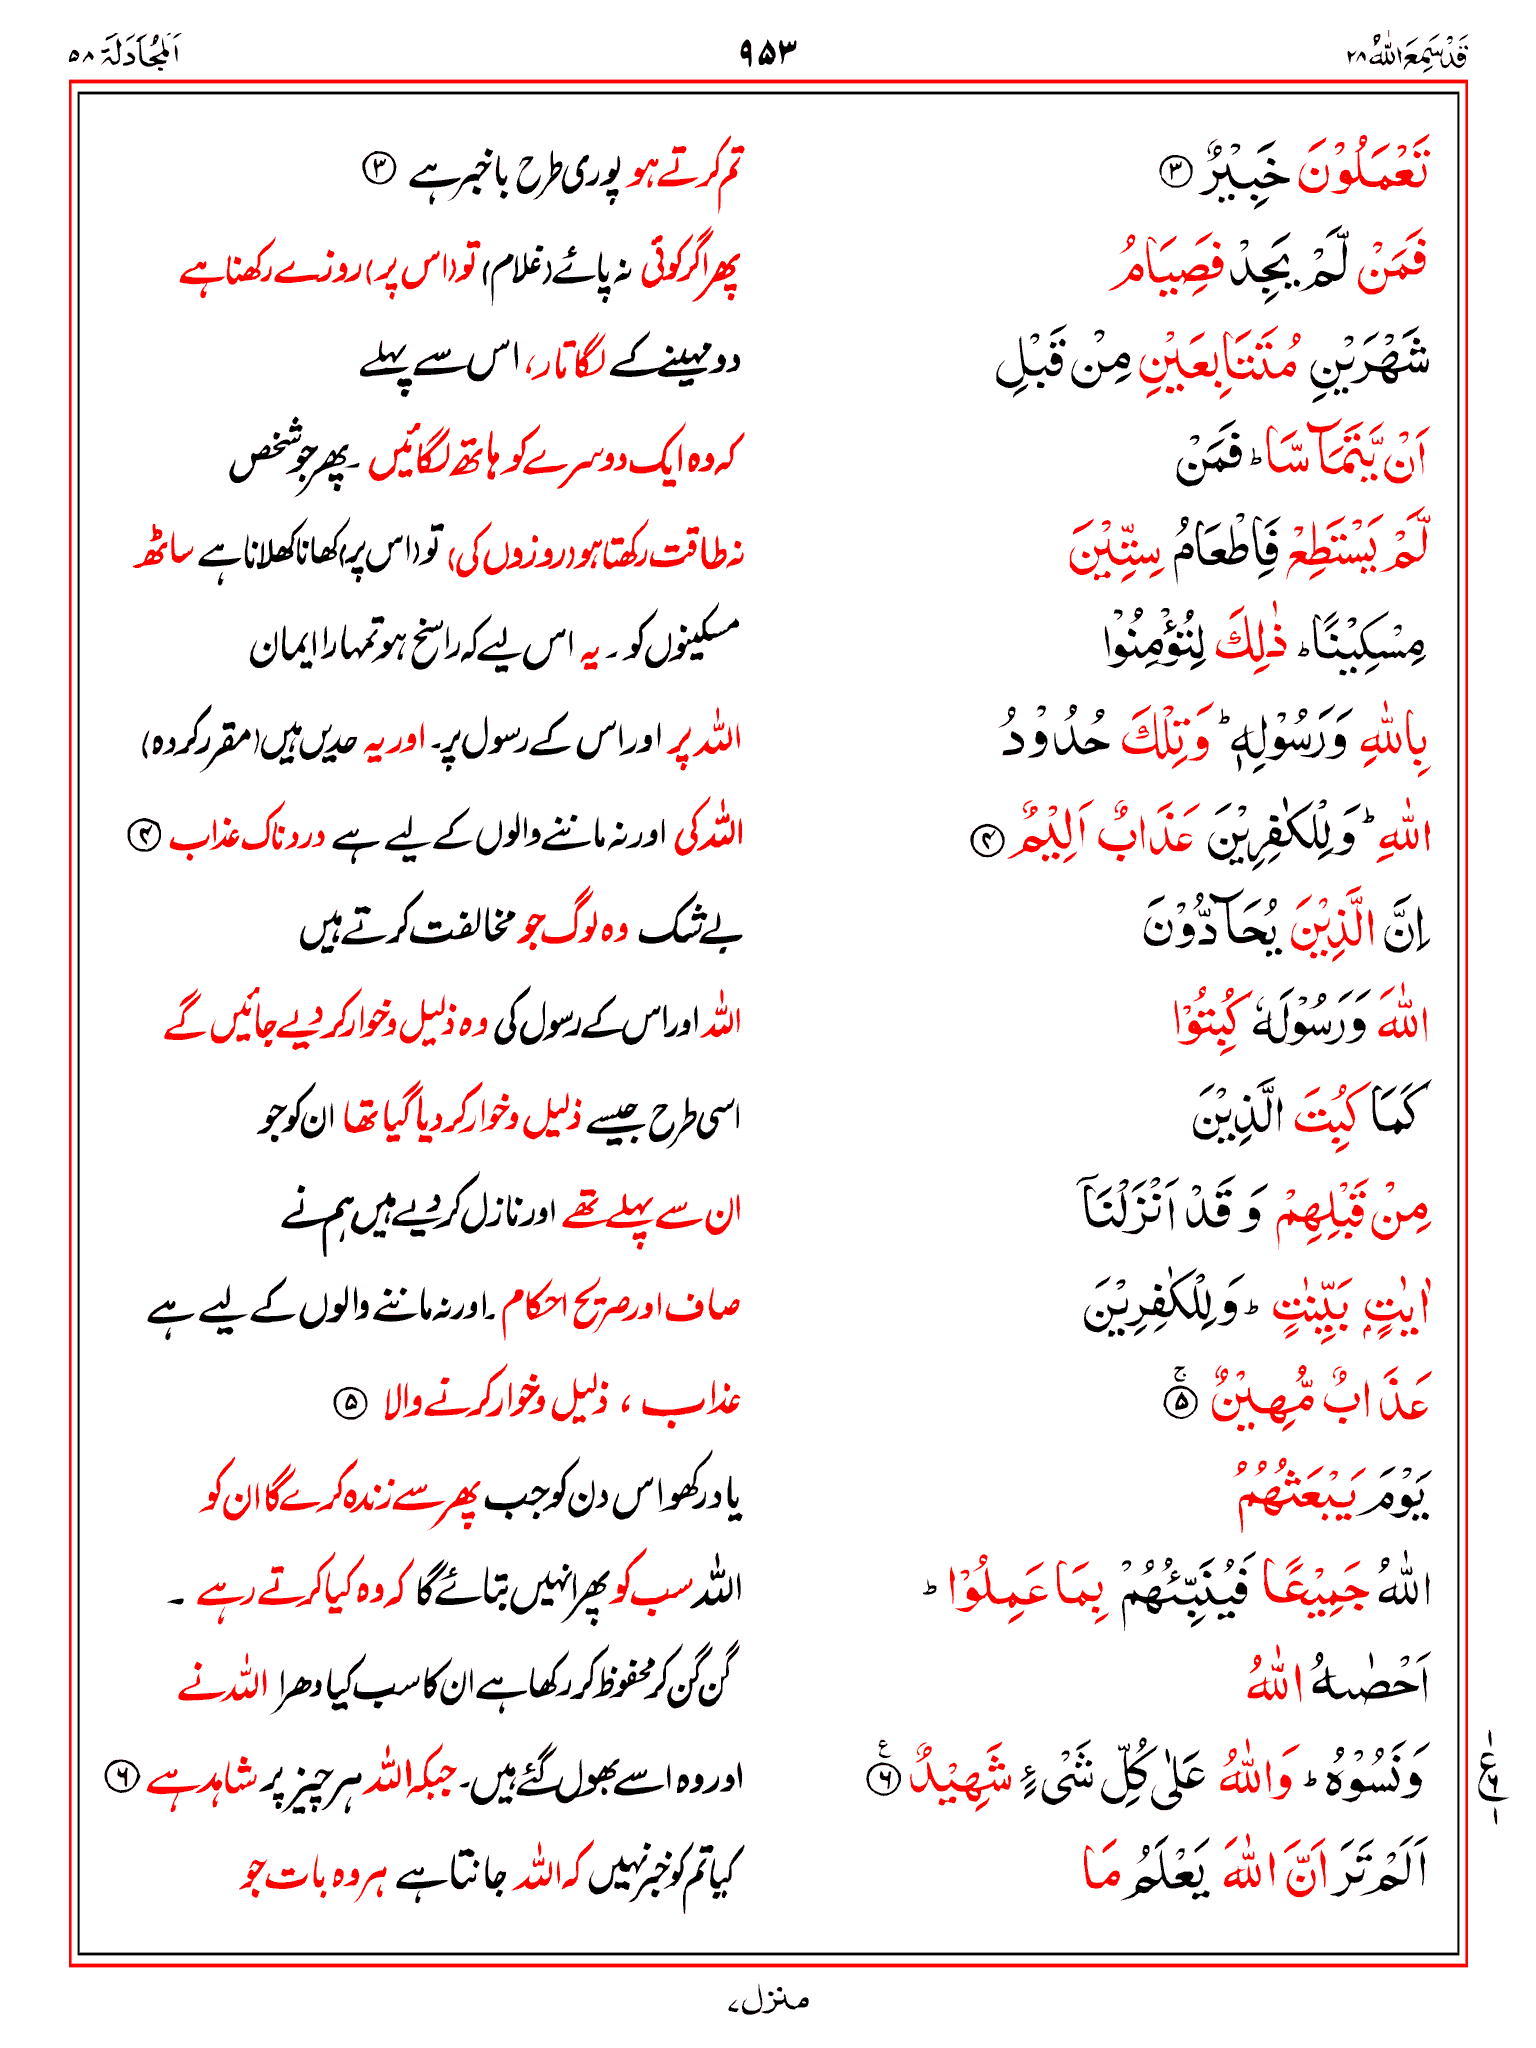 قَدْسَمِعَ اللّٰهُ ۲۸ ۹۵۳ اَلْمُجَادَلَۃ ۵۸
تَعْمَلُوْنَ خَبِيْرٌ ﴿۳﴾ تم کرتے ہو پوری طرح باخبر ہے ﴿۳﴾
فَمَنْ لَّمْ يَجِدْ فَصِيَامُ پھر اگر کوئی نہ پائے (غلام) تو (اس پر) روزے رکھنا ہے
شَهْرَيْنِ مُتَتَابِعَيْنِ مِنْ قَبْلِ دو مہینے کے لگاتار، اس سے پہلے
اَنْ يَّتَمَآسَّا ؕ فَمَنْ کہ وہ ایک دوسرے کو ہاتھ لگائیں ۔ پھر جو شخص
لَّمْ يَسْتَطِعْ فَاِطْعَامُ سِتِّيْنَ نہ طاقت رکھتا ہو (روزوں کی) تو (اس پر) کھانا کھلانا ہے ساٹھ
مِسْكِيْنًا ؕ ذٰلِكَ لِتُؤْمِنُوْا مسکینوں کو ۔ یہ اس لیے کہ راسخ ہو تمہارا ایمان
بِاللّٰهِ وَرَسُوْلِهٖ ؕ وَتِلْكَ حُدُوْدُ اللہ پر اور اس کے رسول پر۔ اور یہ حدیں ہیں (مقرر کردہ)
اللّٰهِ ؕ وَلِلْكٰفِرِيْنَ عَذَابٌ اَلِيْمٌ ﴿۴﴾ اللہ کی اور نہ ماننے والوں کے لیے ہے دردناک عذاب ﴿۴﴾
اِنَّ الَّذِيْنَ يُحَآدُّوْنَ بے شک وہ لوگ جو مخالفت کرتے ہیں
اللّٰهَ وَرَسُوْلَهٗ كُبِتُوْا اللہ اور اس کے رسول کی وہ ذلیل و خوار کر دیے جائیں گے
كَمَا كُبِتَ الَّذِيْنَ اسی طرح جیسے ذلیل و خوار کر دیا گیا تھا ان کو جو
مِنْ قَبْلِهِمْ وَ قَدْ اَنْزَلْنَآ ان سے پہلے تھے اور نازل کر دیے ہیں ہم نے
اٰيٰتٍۭ بَيِّنٰتٍ ؕ وَلِلْكٰفِرِيْنَ صاف اور صریح احکام ۔ اور نہ ماننے والوں کے لیے ہے
عَذَابٌ مُّهِيْنٌ ﴿۵﴾ۚ عذاب ، ذلیل و خوار کرنے والا ﴿۵﴾
يَوْمَ يَبْعَثُهُمُ یاد رکھو اس دن کو جب پھر سے زندہ کرے گا ان کو
اللّٰهُ جَمِيْعًا فَيُنَبِّئُهُمْ بِمَا عَمِلُوْا ؕ اللہ سب کو پھر انہیں بتائے گا کہ وہ کیا کرتے رہے ۔
اَحْصٰىهُ اللّٰهُ گن گن کر محفوظ کر رکھا ہے ان کا سب کیا دھرا اللہ نے
وَنَسُوْهُ ؕ وَاللّٰهُ عَلٰى كُلِّ شَیْءٍ شَهِيْدٌ ﴿۶﴾ ع اور وہ اسے بھول گئے ہیں۔ جبکہ اللہ ہر چیز پر شاہد ہے ﴿۶﴾
اَلَمْ تَرَ اَنَّ اللّٰهَ يَعْلَمُ مَا کیا تم کو خبر نہیں کہ اللہ جانتا ہے ہر وہ بات جو
۱ ع ۶ ۱
منزل ۷